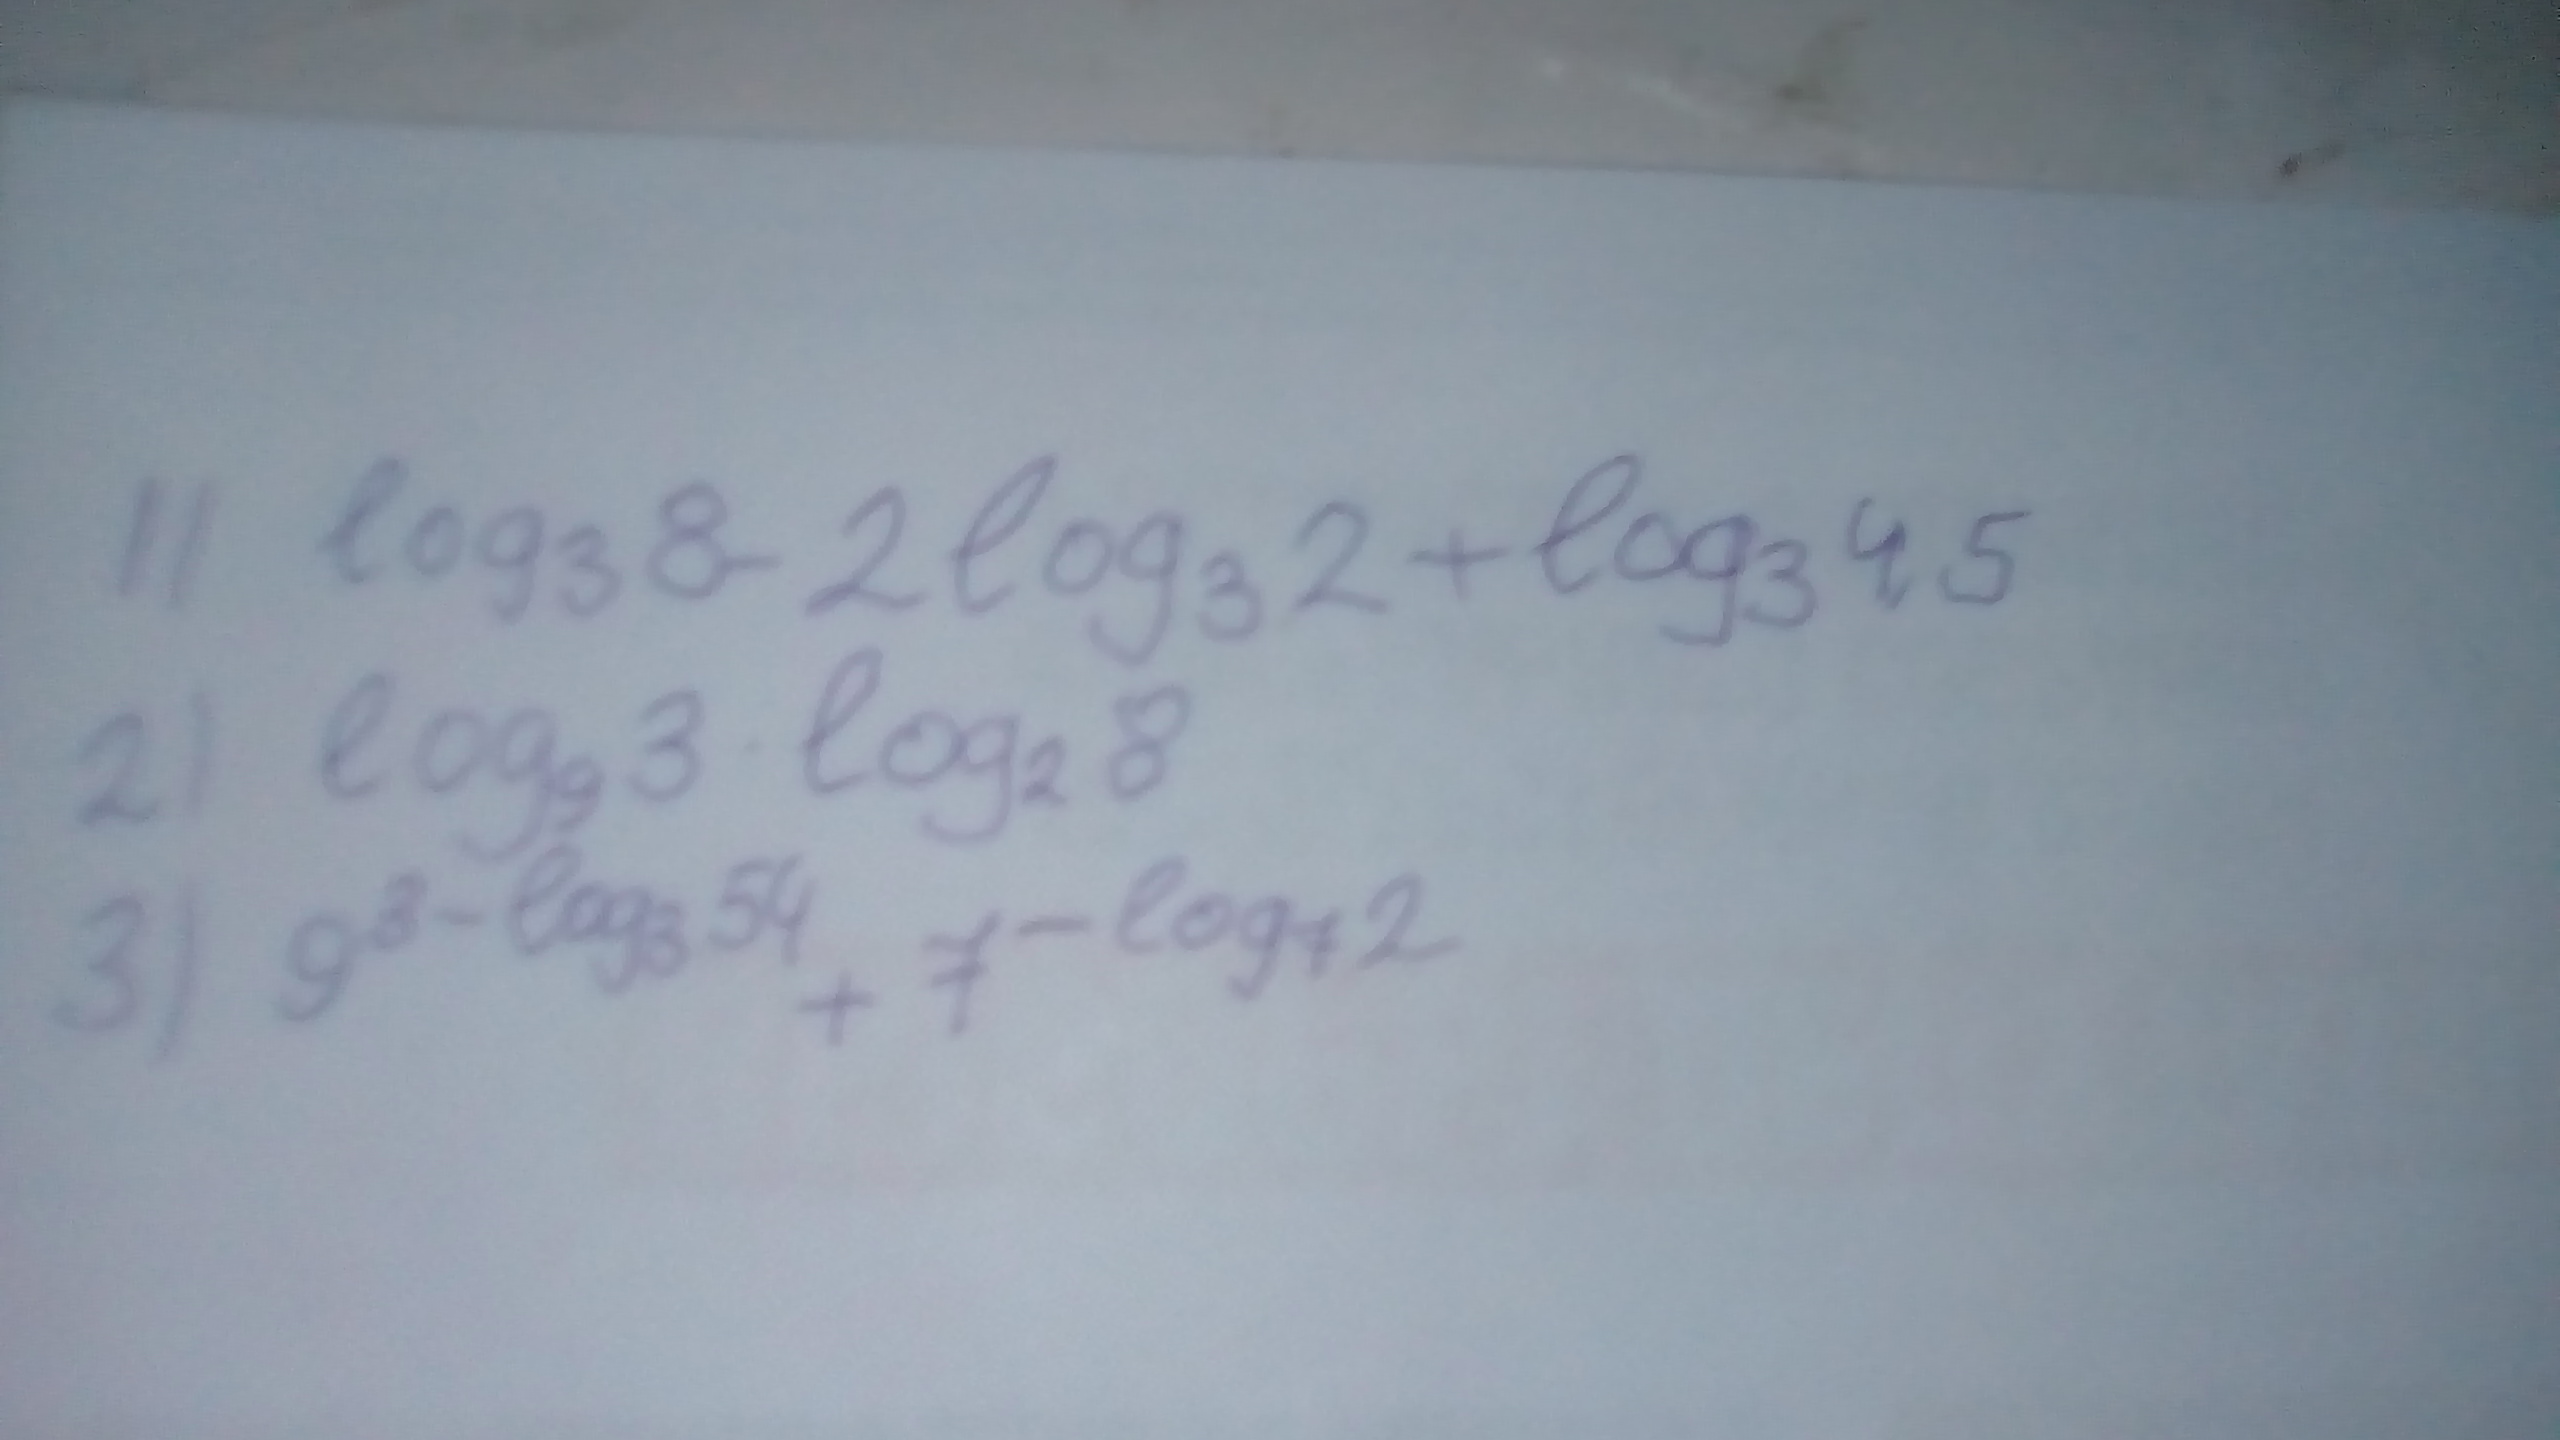 1) log₃8 - 2log₃2 + log₃45
2) log₉3 · log₂8
3) 9^(3-log₃54) + 7^(-log₇2)